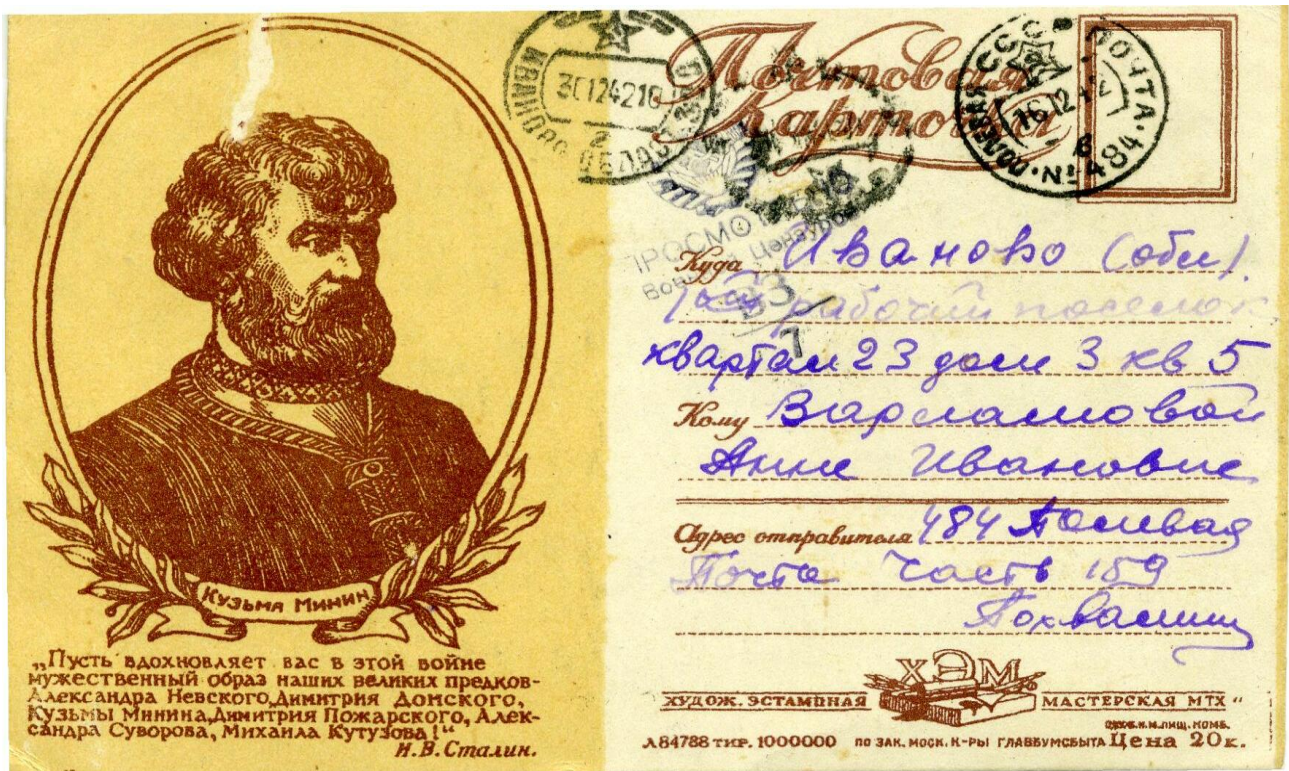 Кузьма Минин
„Пусть вдохновляет вас в этой войне
мужественный образ наших великих предков-
Александра Невского, Димитрия Донского,
Кузьмы Минина, Димитрия Пожарского, Алек-
сандра Суворова, Михаила Кутузова!"
И. В. Сталин.
Почтовая
Карточка
30 12 42 10
2
ПОЛЕВАЯ ПОЧТА • № 484
СССР
16 12 42
Куда Иваново (обл).
рабочий поселок
квартал 23 дом 3 кв 5
Кому Варламовой
Анне Ивановне
Адрес отправителя 484 Полевая
Почта Часть 159
ХЭМ
ХУДОЖ. ЭСТАМПНАЯ МАСТЕРСКАЯ МТХ "
Л 84788 тир. 1000000 по зак. моск. к-ры главбумсбыта Цена 20 к.